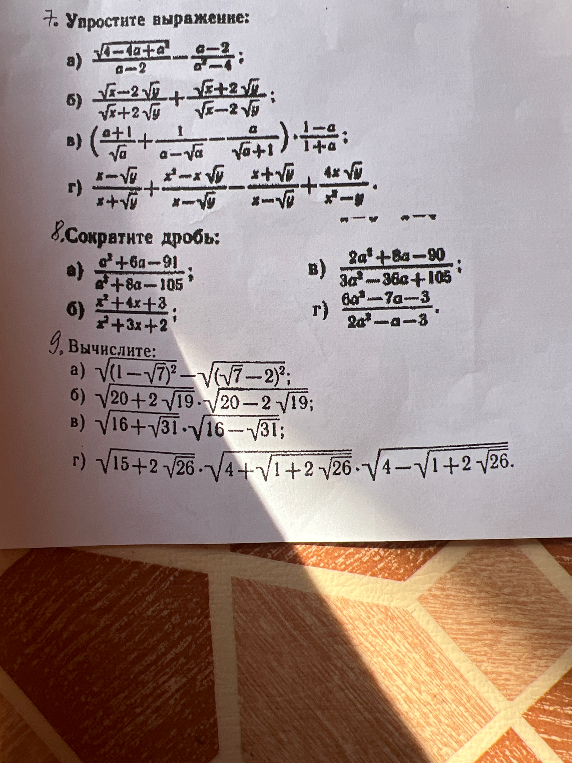 7. Упростите выражение:
а) √(4−4a+a²)/(a−2) − (a−2)/(a²−4);
б) (√x−2√y)/(√x+2√y) + (√x+2√y)/(√x−2√y);
в) ((a+1)/√a + 1/(a−√a) − a/(√a+1)) · (1−a)/(1+a);
г) (x−√y)/(x+√y) + (x²−x√y)/(x−√y) − (x+√y)/(x−√y) + 4x√y/(x²−y).
8. Сократите дробь:
а) (a²+6a−91)/(a²+8a−105); в) (2a²+8a−90)/(3a²−36a+105);
б) (x²+4x+3)/(x²+3x+2); г) (6a²−7a−3)/(2a²−a−3).
9. Вычислите:
а) √((1−√7)²) − √((√7−2)²);
б) √(20+2√19) · √(20−2√19);
в) √(16+√31) · √(16−√31);
г) √(15+2√26) · √(4+√(1+2√26)) · √(4−√(1+2√26)).